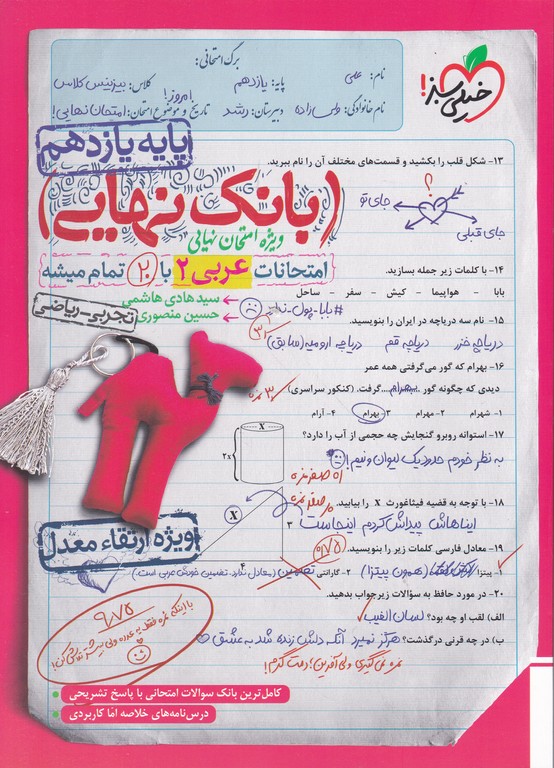 برگ امتحانی:
نام: علی
پایه: یازدهم
کلاس: بیزینس کلاس
نام خانوادگی:
دبیرستان: رشد
تاریخ و موضوع امتحان: امروز! امتحان نهایی!
خیلی سبز!
پایه یازدهم
(بانک نهایی)
ویژه امتحان نهایی
امتحانات عربی ۲ با ۲۰ تمام میشه
سید هادی هاشمی
حسین منصوری
تجربی-ریاضی
۱۳- شکل قلب را بکشید و قسمت‌های مختلف آن را نام ببرید.
؟
جای تو
جای قبلی
۱۴- با کلمات زیر جمله بسازید.
بابا - هواپیما - کیش - سفر - ساحل
۱۵- نام سه دریاچه در ایران را بنویسید.
دریاچه خزر دریاچه قم دریاچه ارومیه (سابق)
۱۶- بهرام که گور می‌گرفتی همه عمر
دیدی که چگونه گور ...بهرام... گرفت. (کنکور سراسری)
۱- شهرام ۲- مهرام ۳- بهرام ۴- آرام
۱۷- استوانه روبرو گنجایش چه حجمی از آب را دارد؟
به نظر خودم حدود یک لیوان و نیم!
X
2x
۱۸- با توجه به قضیه فیثاغورث X را بیابید.
ایناهاش پیداش کردم اینجاست
X
۳
۴
۱۹- معادل فارسی کلمات زیر را بنویسید.
۱- پیتزا (همون پیتزا) ۲- گارانتی تضمین (معادل ندارد. تضمین خودش عربی است.)
۲۰- در مورد حافظ به سؤالات زیر جواب بدهید.
الف) لقب او چه بود؟ لسان الغیب
ب) در چه قرنی درگذشت؟ هرگز نمیرد آنکه دلش زنده شد به عشق
نمره نمی‌گیری ولی آفرین! دمت گرم!
ویژه ارتقاء معدل
۹/۷۵
کامل‌ترین بانک سوالات امتحانی با پاسخ تشریحی
درس‌نامه‌های خلاصه امّا کاربردی